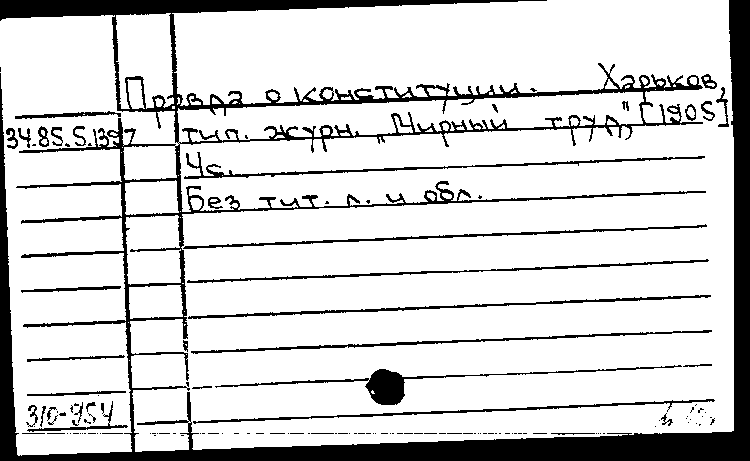 Правда о конституции. Харьков,
34.85.5.1397 тип. журн. „Мирный труд", [1905].
4с.
Без тит. л. и обл.
310-954